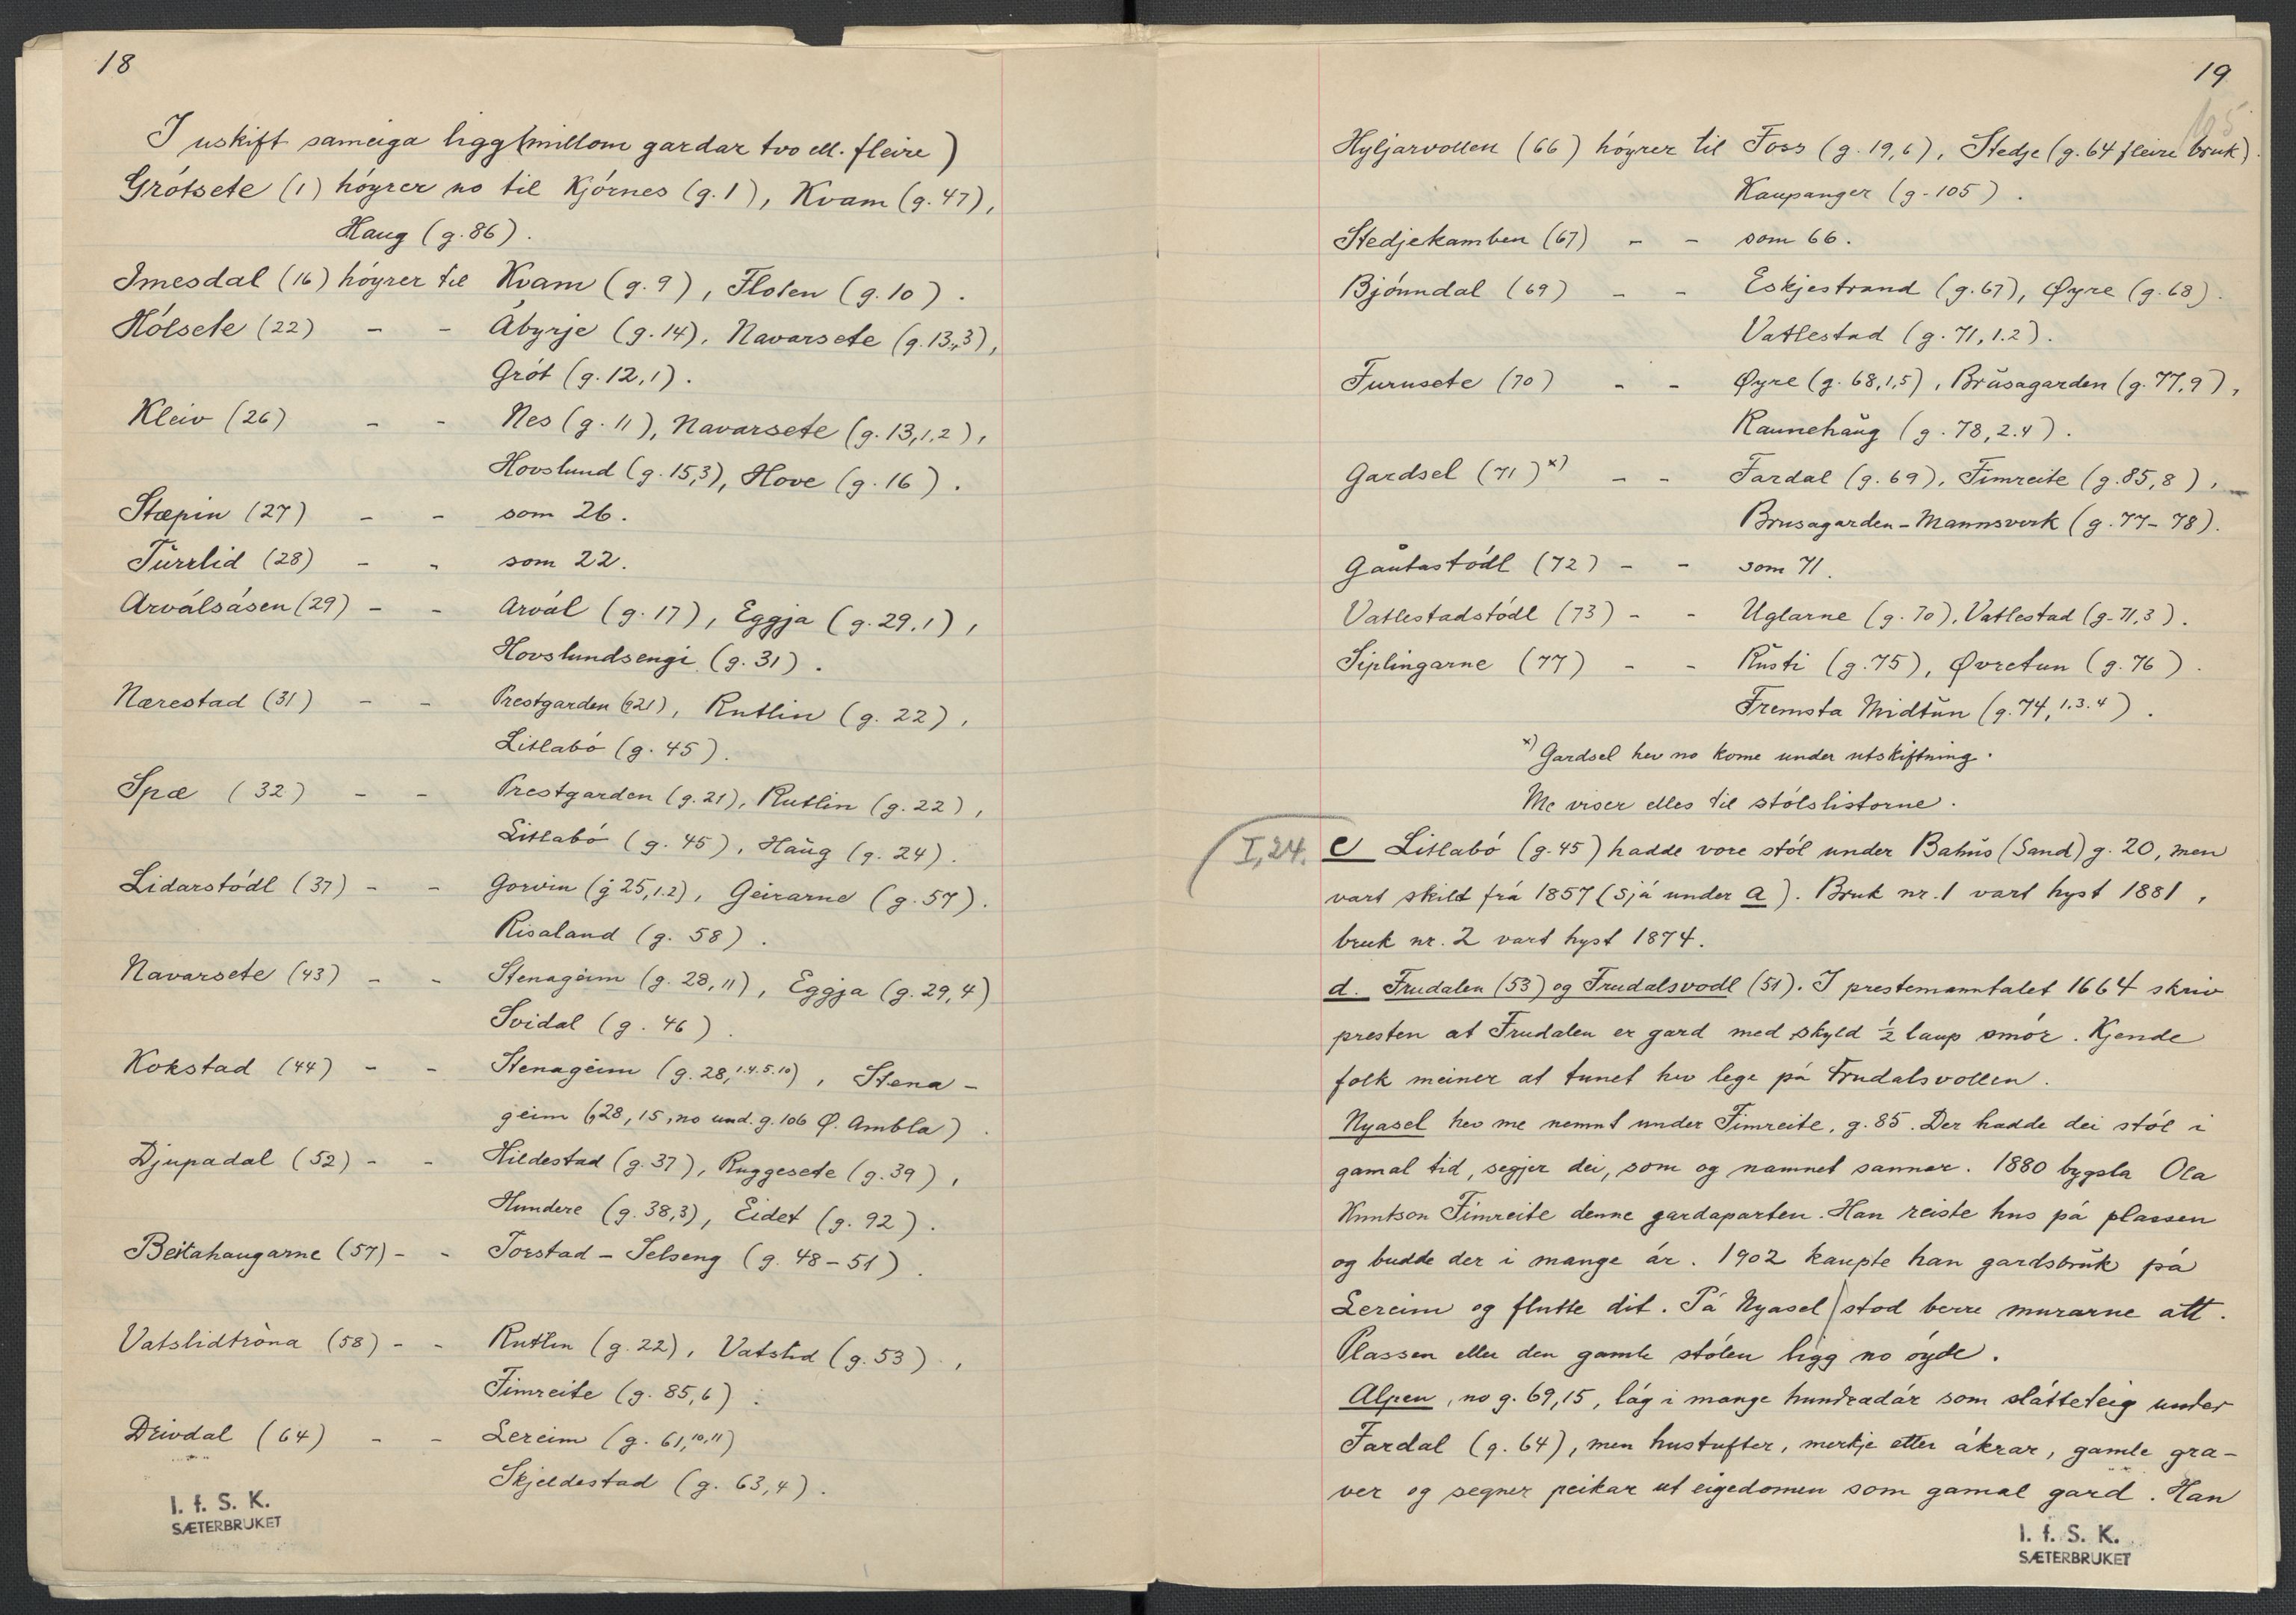 18
I uskift sameiga ligg (millom gardar tvo ell. fleire)
Grótsete (1) höyrer no til Kjórnes (g. 1), Kvam (g. 47),
Haug (g. 86).
Imesdal (16) höyrer til Kvam (g. 9), Floten (g. 10).
Hólsete (22) - - Åbyrje (g. 14), Navarsete (g. 13,3),
Grót (g. 12,1).
Kleiv (26) - - Nes (g. 11), Navarsete (g. 13,1,2),
Hovslund (g. 15,3), Hove (g. 16).
Stæpin (27) - - som 26.
Turrlid (28) - - som 22.
Arválsåsen (29) - - Arvál (g. 17), Eggja (g. 29,1),
Hovslundsengi (g. 31).
Nærestad (31) - - Prestgarden (g21), Rutlin (g. 22),
Litlabó (g. 45).
Spæ (32) - - Prestgarden (g. 21), Rutlin (g. 22),
Litlabó (g. 45), Haug (g. 24).
Lidarstódl (37) - - Gorvin (g 25,1.2), Geirarne (g. 57).
Risaland (g. 58).
Navarsete (43) - - Stenageim (g. 28,11), Eggja (g. 29,4)
Svidal (g. 46).
Kokstad (44) - - Stenageim (g. 28,1.4.5.10), Stena-
geim (g28,15, no und. g. 106 Ø. Ambla).
Djupadal (52) - - Hildestad (g. 37), Ruggesete (g. 39),
Hundere (g. 38,3), Eidet (g. 92).
Beitahaugarne (57) - - Torstad - Selseng (g. 48-51).
Vatslidtróna (58) - - Rutlin (g. 22), Vatslid (g. 53),
Fimreite (g. 85,6).
Drivdal (64) - - Lereim (g. 61,10,11)
Skjeldestad (g. 63,4).
I. f. S. K.
SÆTERBRUKET
19
Hyljarvollen (66) höyrer til Foss (g. 19,6), Stedje (g. 64 fleire bruk).
Kaupanger (g. 105).
Stedjekamben (67) - - som 66.
Bjónndal (69) - - Eskjestrand (g. 67), Øyre (g. 68).
Vatlestad (g. 71,1.2).
Furusete (70) - - Øyre (g. 68,1,5), Brusagarden (g. 77,9),
Raunehaug (g. 78,2.4).
Gardsel (71) x) - - Fardal (g. 69), Fimreite (g. 85,8),
Brusagarden - Mannsverk (g. 77-78).
Gautastódl (72) - - som 71.
Vatlestadstódl (73) - - Uglarne (g. 70), Vatlestad (g. 71,3).
Siplingarne (77) - - Rusti (g. 75), Øvretun (g. 76).
Fremsta Midtun (g. 74,1.3.4).
x) Gardsel hev no kome under utskiftning.
Me viser elles til stólslistorne.
I,24. c Litlabó (g. 45) hadde vore stól under Bahus (Sand) g. 20, men
vart skild frá 1857 (sjå under a). Bruk nr. 1 vart hyst 1881,
bruk nr. 2 vart hyst 1874.
d. Frudalen (53) og Frudalsvodl (51). I prestemanntalet 1664 skriv
presten at Frudalen er gard med skyld ½ laup smór. Kjende
folk meiner at tunet hev lege på Frudalsvollen.
Nyasel hev me nemnt under Fimreite, g. 85. Der hadde dei stól i
gamal tid, segjer dei, som og namnet sannar. 1880 bygsla Ola
Knutson Fimreite denne gardaparten. Han reiste hus på plassen
og budde der i mange år. 1902 kaupte han gardsbruk på
Lereim og flutte dit. På Nyasel stod berre murarne att.
Plassen eller den gamle stólen ligg no óyde.
Alpen, no g. 69,15, låg i mange hundradår som slåtteteig under
Fardal (g. 64), men hustufter, merkje etter åkrar, gamle gra-
ver og segner peikar ut eigedomen som gamal gard. Han
I. f. S. K.
SÆTERBRUKET